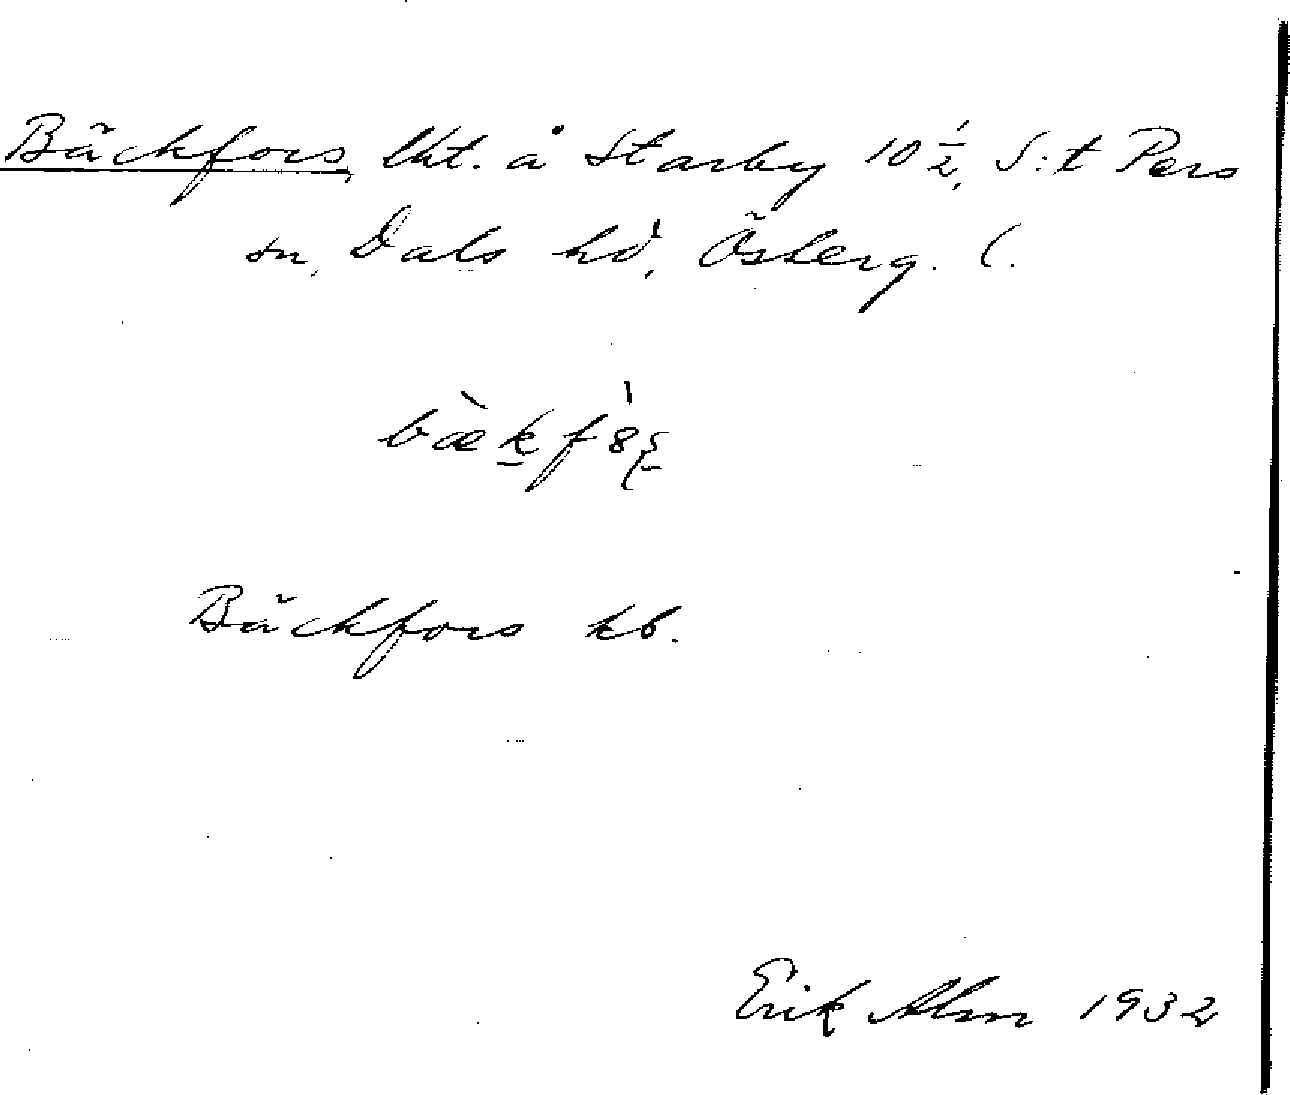 Bäckfors, lht. å Starby 10 1/2, S:t Pers
sn, Dals hd, Österg. l.
bæ̀kf
Bäckfors kb.
Erik Alm 1932